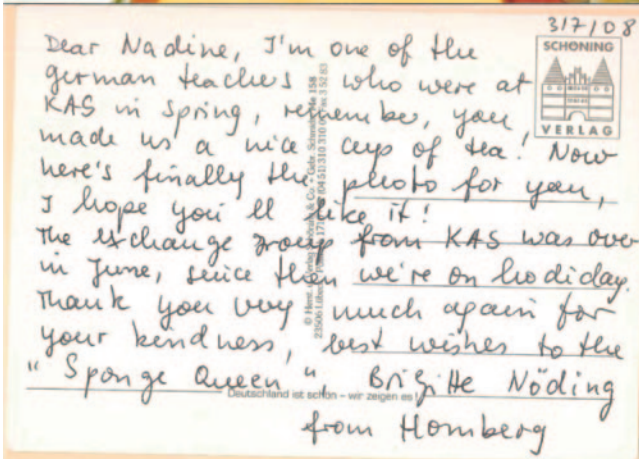 3/7/08
SCHÖNING
VERLAG
Dear Nadine, I'm one of the
german teachers who were at
KAS in Spring, remember, you
made us a nice cup of tea! Now
here's finally the photo for you,
I hope you'll like it!
The exchange group from KAS was over
in June, since then we're on hodiday.
Thank you very much again for
your kindness, best wishes to the
"Sponge Queen", Brigitte Nöding
from Homberg
Deutschland ist schön – wir zeigen es!